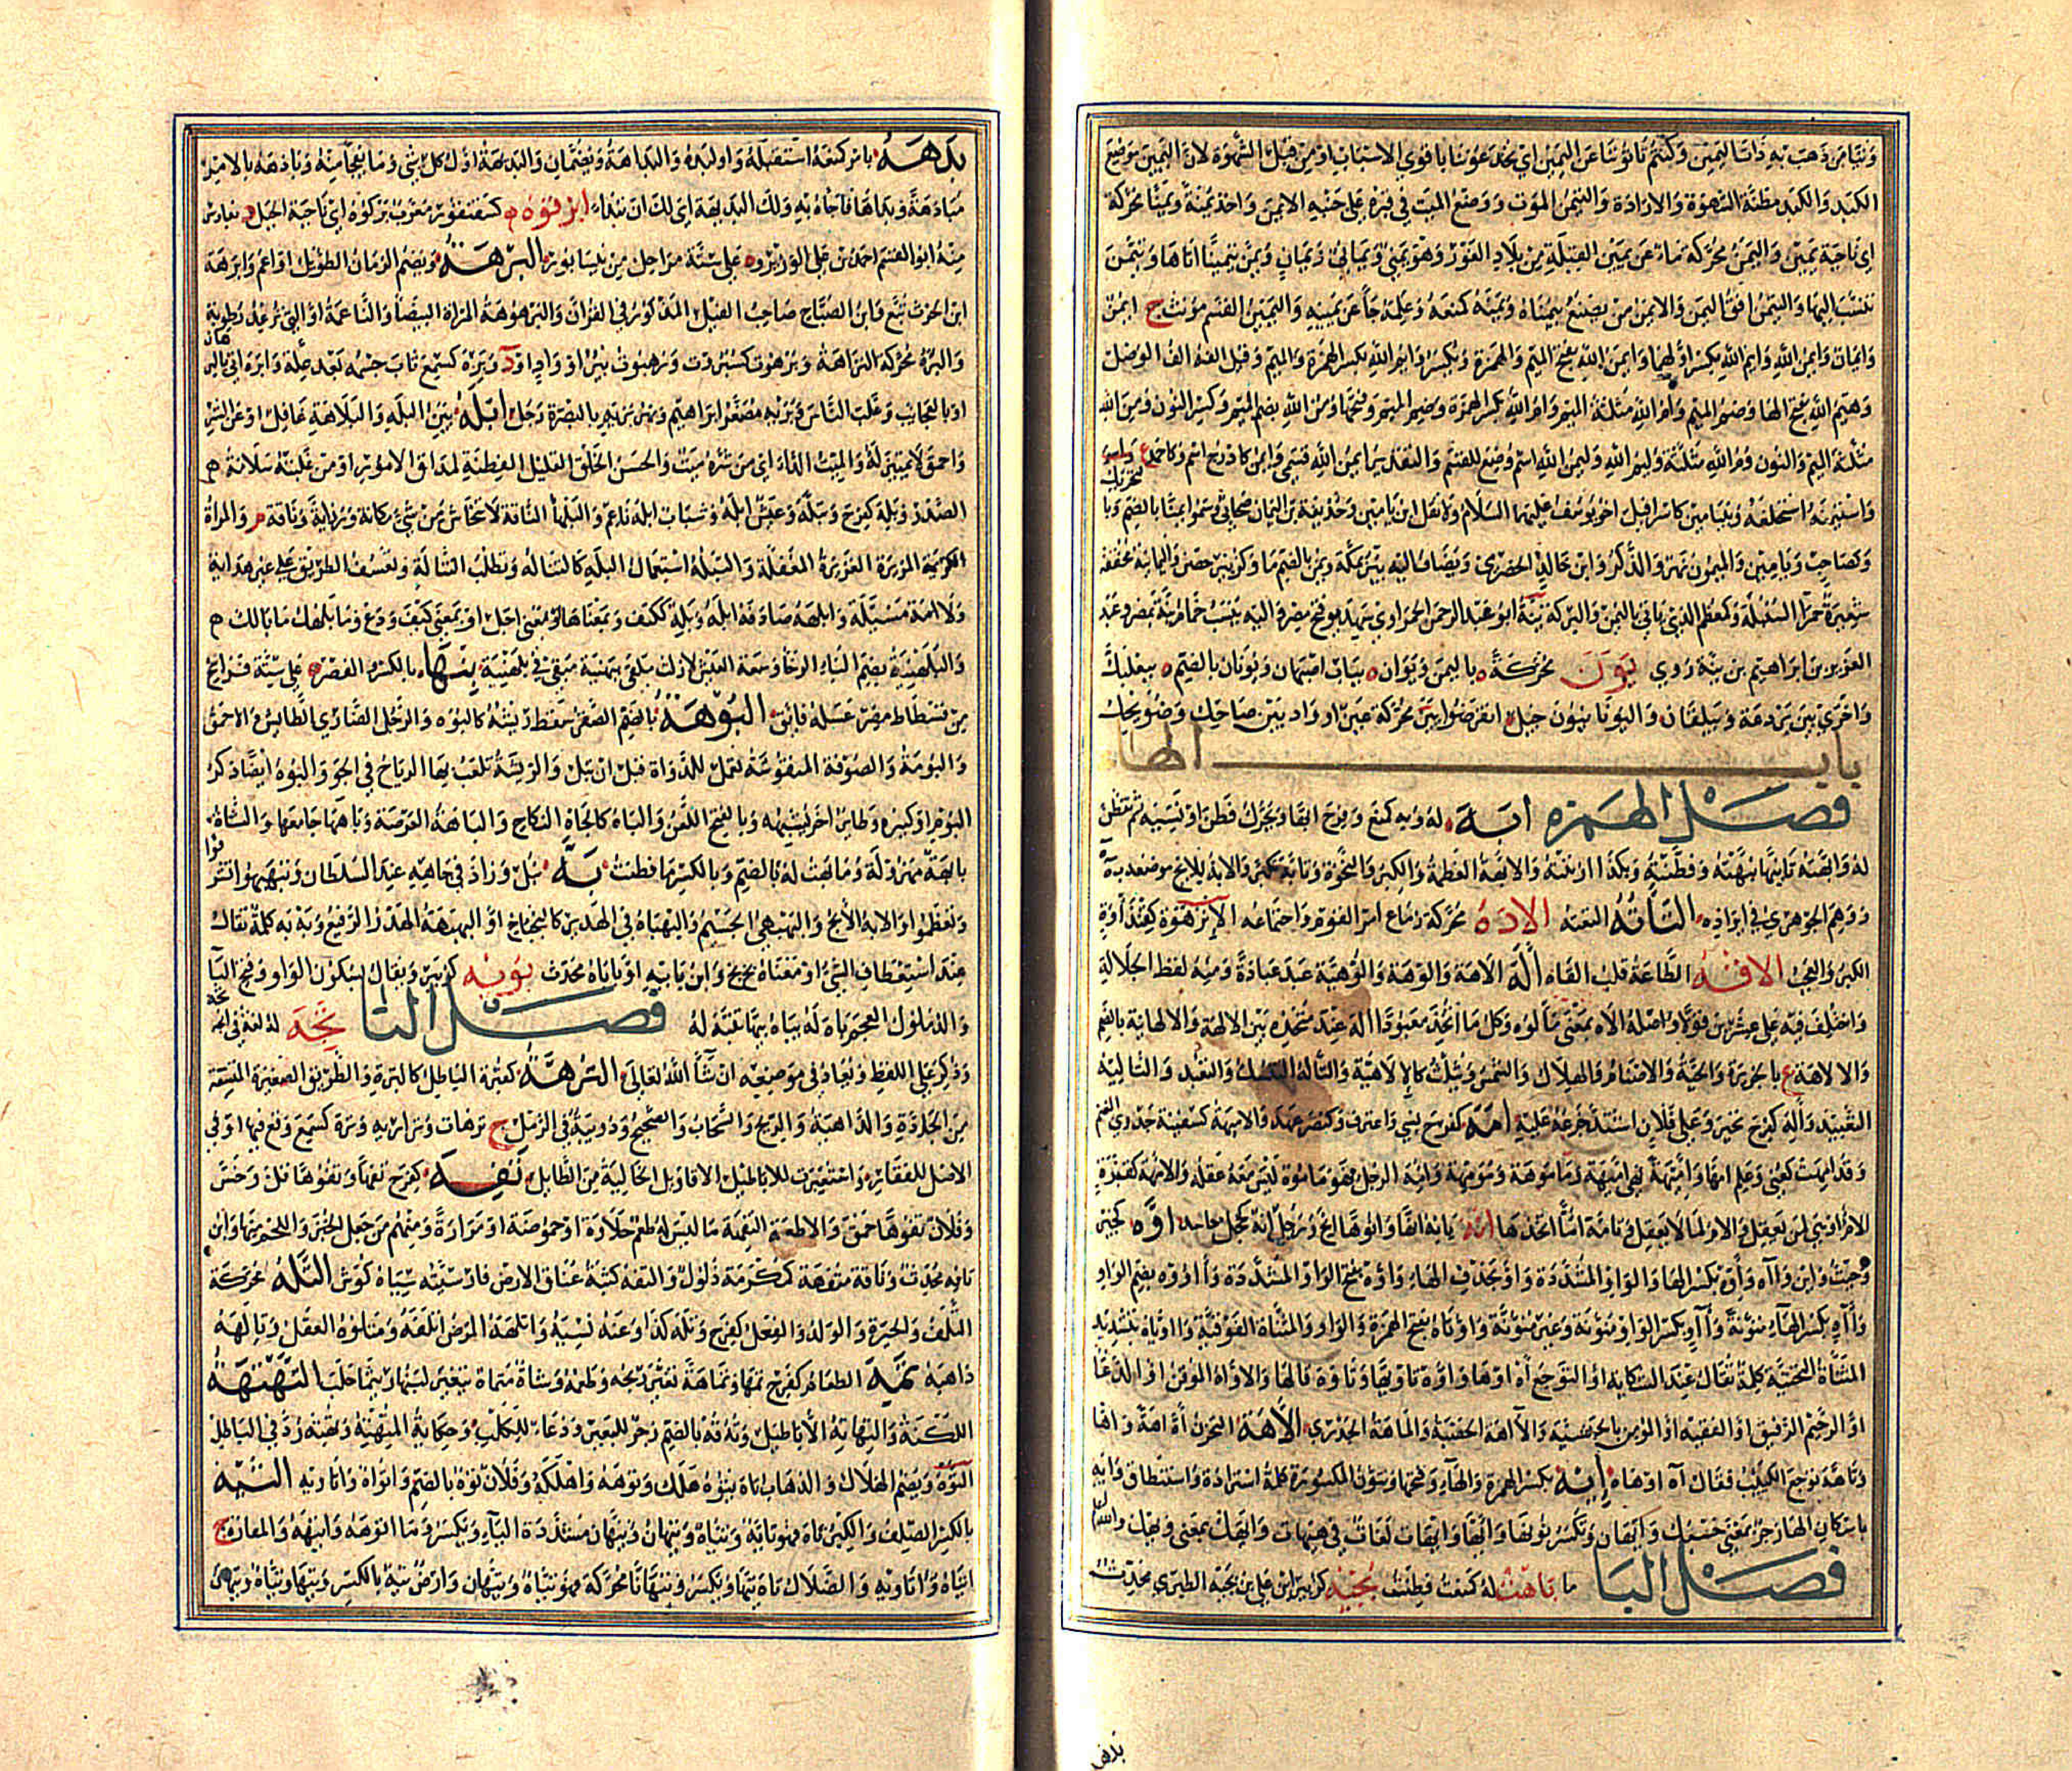 وتيامن ذهب به ذات اليمين وكنتم تأتوننا عن اليمين اي تخدعوننا باقوى الاسباب او من قبل الشهوة لان اليمين موضع
الكبد والكبد مظنة الشهوة والارادة والتيمن الموت ووضع الميت في قبره على جنبه الايمن واخذ يمنة ويمنا محركة
اي ناحية يمين واليمن محركة ما عن يمين القبلة من بلاد الغور وهو يمني ويماني ويمان ويمن تيمينا اتاها وتيمن
تنسب اليها والتيمني افق اليمن والايمن من يصنع بيمناه ويمنه كمنعه وعلمه جاء عن يمينه واليمين القسم مونث ج ايمن
وايمان وايمن الله وايم الله بكسر اولهما وايمن الله بفتح الميم والهمزة وبكسر وايم الله بكسر الهمزة والميم وقيل الفه الف الوصل
وهيم الله بفتح الها وضم الميم وام الله مثلثة الميم وام الله بكسر الهمزة وضم الميم وفتحها ومن الله بضم الميم وكسر النون ومن الله
مثلثة الميم والنون وم الله مثلثة وليم الله وليمن الله اسم وضع للقسم والتقدير ايمن الله قسمي وايمن كاذرح اسم وكاحمد ع
واستيمنه استحلفه وبنيامين كاسرافيل اخو يوسف عليهما السلام ولا تقل ابن يامين وحذيفة بن اليمان صحابي وسموا يمنا بالضم وبالتحريك
وكصاحب ويامين والميمون نهر والذكر وابن خالد الحضرمي ويضاف اليه بير بمكة ويمن بالضم ما وكزبير حصن واليمانية مخففة
شعيرة حمرا السنبلة وكمعظم الذي ياتي باليمن والبركة
العزيز بن ابراهيم بن ينة روى يون محركة ه باليمن ويوان ه بباب اصبهان ويونان بالضم ه ببعلبك
واخرى بين بردعة وبيلقان واليونانيون جيل انقرضوا يين محركة عين او واد بين ضاحك وضويحك
باب الها
فصل الهمزه ابه له وبه كمنع وفرح ابها ويحرك فطن او نسيه ثم تفطن
له وابهته تابيها نبهته وفطنته وبكذا ازننته والابهة العظمة والكبر والنخوة وتابه تكبر والابه للابح موضعه به
ووهم الجوهري في ايراده التاته التعته الاده محركة زماع امر القوم واجتماعه الانزهوة كقنداوة
الكبر والعجب الاقه الطاعة قلب القاه اله الاهة والوهة والوهية عبد عبادة ومنه لفظ الجلالة
واختلف فيه على عشرين قولا واصله الاه بمعنى مالوه وكل ما اتخذ معبودا اله عند متخذه بين الالاهة والالهانية بالضم
والالاهة ع بالجزيرة والحية والاصنام والهلال والشمس ويثلث كالالاهية والتاله التنسك والتعبد والتاليه
التعبيد واله كفرح تحير وعلى فلان اشتد جزعه عليه امه كفرح نسي واعترف وكنصر عهد والاميهة كسفينة جدري الغنم
وقد اميهت كعني وعلم امها واميهة فهي اميهة وماموهة ومومهة وامه الرجل فهو ماموه ليس معه عقله والامهة كقبرة
الام او هي لمن يعقل والام لما لا يعقل وتامه اما اتخذها انه يانه انها وانوها انح ورجل انه كخجل حاسد اوه كجير
وحيث واين وآه واوه بكسر الها والواو المشددة واو بحذف الها واوه بفتح الواو المشددة وآووه بضم الواو
وآه بكسر الها منونة وآو بكسر الواو منونة وغير منونة واوتاه بفتح الهمزة والواو والمثناة الفوقية وآوياه بتشديد
المثناة التحتية كلمة تقال عند الشكاية او التوجع آه اوها واوه تاويها وتاوه قالها والاواه الموقن او الدعا
او الرحيم الرفيق او الفقيه او المومن بالحبشية والآهة الحصبة والماهة الجدري الاهة التحزن اه اهة واها
وتاهه توجع الكئيب فقال آه او هاه ايه بكسر الهمزة والها وفتحها وتنون المكسورة كلمة استزادة واستنطاق وايه
باسكان الها زجر بمعنى حسبك وايهان ويكسر وايها وايهات لغات في هيهات وايهك بمعنى ويهك
فصل البا ما باهت له كمنعت فطنت بجيه كزبير ابن علي بن بجيه الطبري محدث
بدهه
بدهه بامر كمنعه استقبله او بداه والبداهة ويضمان والبديهة اول كل شي وما يفجا منه وبادهه بالامر
مبادهة وبداها فاجاه به ولك البديهة اي لك ان تبدا ابرقوه كسقنقور معرب بركوه اي ناحية الجبل د بفارس
منه ابو القسم احمد بن علي الوزير و ه على ستة مراحل من نيسابور البرهة ويضم الزمان الطويل او اعم وابرهة
ابن الحرث تبع وابن الصباح صاحب الفيل المذكور في القرآن والبرهرهة المراة البيضا الشابة الناعمة او التي ترعد رطوبة
والبره محركة البراهة وبرهوت كسبروت وبرهوت بير او واد او د وبره كسمع ثاب جسمه بعد علة وابره اتى بالبرهان
او بالعجايب وغلب الناس وبريه مصغر ابراهيم ونهر بريه بالبصرة رجل ابله بين البله والبلاهة غافل او عن الشر
او احمق لا تمييز له والميت الداء اي من شره ميت والحسن الخلق القليل الفطنة لمداق الامور او من غلبته سلامة
الصدر وبله كفرح وتبله وعيش ابله وشباب ابله ناعم والبلها الناقة لا تنحاش من شي مكانة ورزانة وناقة م والمراة
الكريمة المزيرة الغريرة المغفلة والتبله استعمال البله كالتباله وتطلب الضالة وتعسف الطريق على غير هداية
ولا مسئلة وابلهه صادفه ابله وبله ككيف ومعناها او بمعنى اجل او بمعنى كيف ودع وما بلهك ما بالك
والبلهنية بضم البا الرخا وسعة العيش بنها بالكسر والقصر ه على ستة فراسخ
من فسطاط مصر عسله فايق البوهة بالضم الصقر سقط ريشه كالبوه والرجل الضاوي الطايش والاحمق
والبومة والصوفة المنفوشة تعمل للدواة قبل ان تبل والريشة تلعب بها الرياح في الجو والبوه ايضا ذكر
البوم او كبيره وطاير اخر يشبهه وبالفتح اللعن والباه كالجاه النكاح والباهة العرصة وباهها جامعها والشاة
بالبة مهزولة وما بهت له بالضم وبالكسر ما فطنت به نبل وزاد في جاهه عند السلطان وتبهبهوا تشرفوا
وتعظموا والابه الابح والبهبهي الجسيم والبهباه في الهدير كالبخباخ او البهبهة الهدر الرفيع وبه به كلمة تقال
عند استعظام الشي او معناه بخ بخ وابن بابيه او باباه محدث بويه كزبير ويقال بسكون الواو وفتح البا
والد ملوك العجم باه له يباه بيها تنبه له فصل التا تجه له لغة في اتجه
وذكر على اللفظ ويعاد في موضعه ان شا الله تعالى الترهة كقبرة الباطل كالتره والطريق الصغيرة المتشعبة
من الجادة والداهية والريح والسحاب والصحصح ودويبة في الرمل ج ترهات وتراريه وتره كسمع وقع فيها او في
الاصل للقفار واستعيرت للاباطيل والاقاويل الخالية من الطايل تفه كفرح تفها وتفوها قل وخس
وفلان تفوها حمق والاطعمة التفهة ما ليس له طعم حلاوة او حموضة او مرارة ومنهم من جعل الخبز واللحم منها وابن
تافه محدث وناقة متفهة كمكرمة ذلول والتفه كثبة عناق الارض فارسيته سياه كوش التله محركة
التلف والحيرة والوله والفعل كفرح وتله كذا وعنه نسيه واتلهه المرض اتلفه ومتلوه العقل وتالهه
ذاهبه تمه الطعام كفرح تمها وتماهة تغير ريحه وطعمه وشاة متماه يتغير لبنها ريثما حلب التهتهة
اللكنة والتهاته الاباطيل وته ته بالضم زجر للبعير ودعا للكلب وحكاية المتهته وتهته ردد في الباطل
التوه ويضم الهلاك والذهاب تاه يتوه هلك وتوهه اهلكه وفلاة توه بالضم ج اتواه واتاويه التيه
بالكسر الصلف والكبر تاه فهو تايه وتياه وتيهان وتيهان مشددة اليا ويكسر وما اتوهه واتيهه والمفازة ج
اتياه واتاويه والضلال تاه تيها ويكسر وتيهانا محركة فهو تياه وتيهان وارض تيه بالكسر وتيها وتياه وتيها